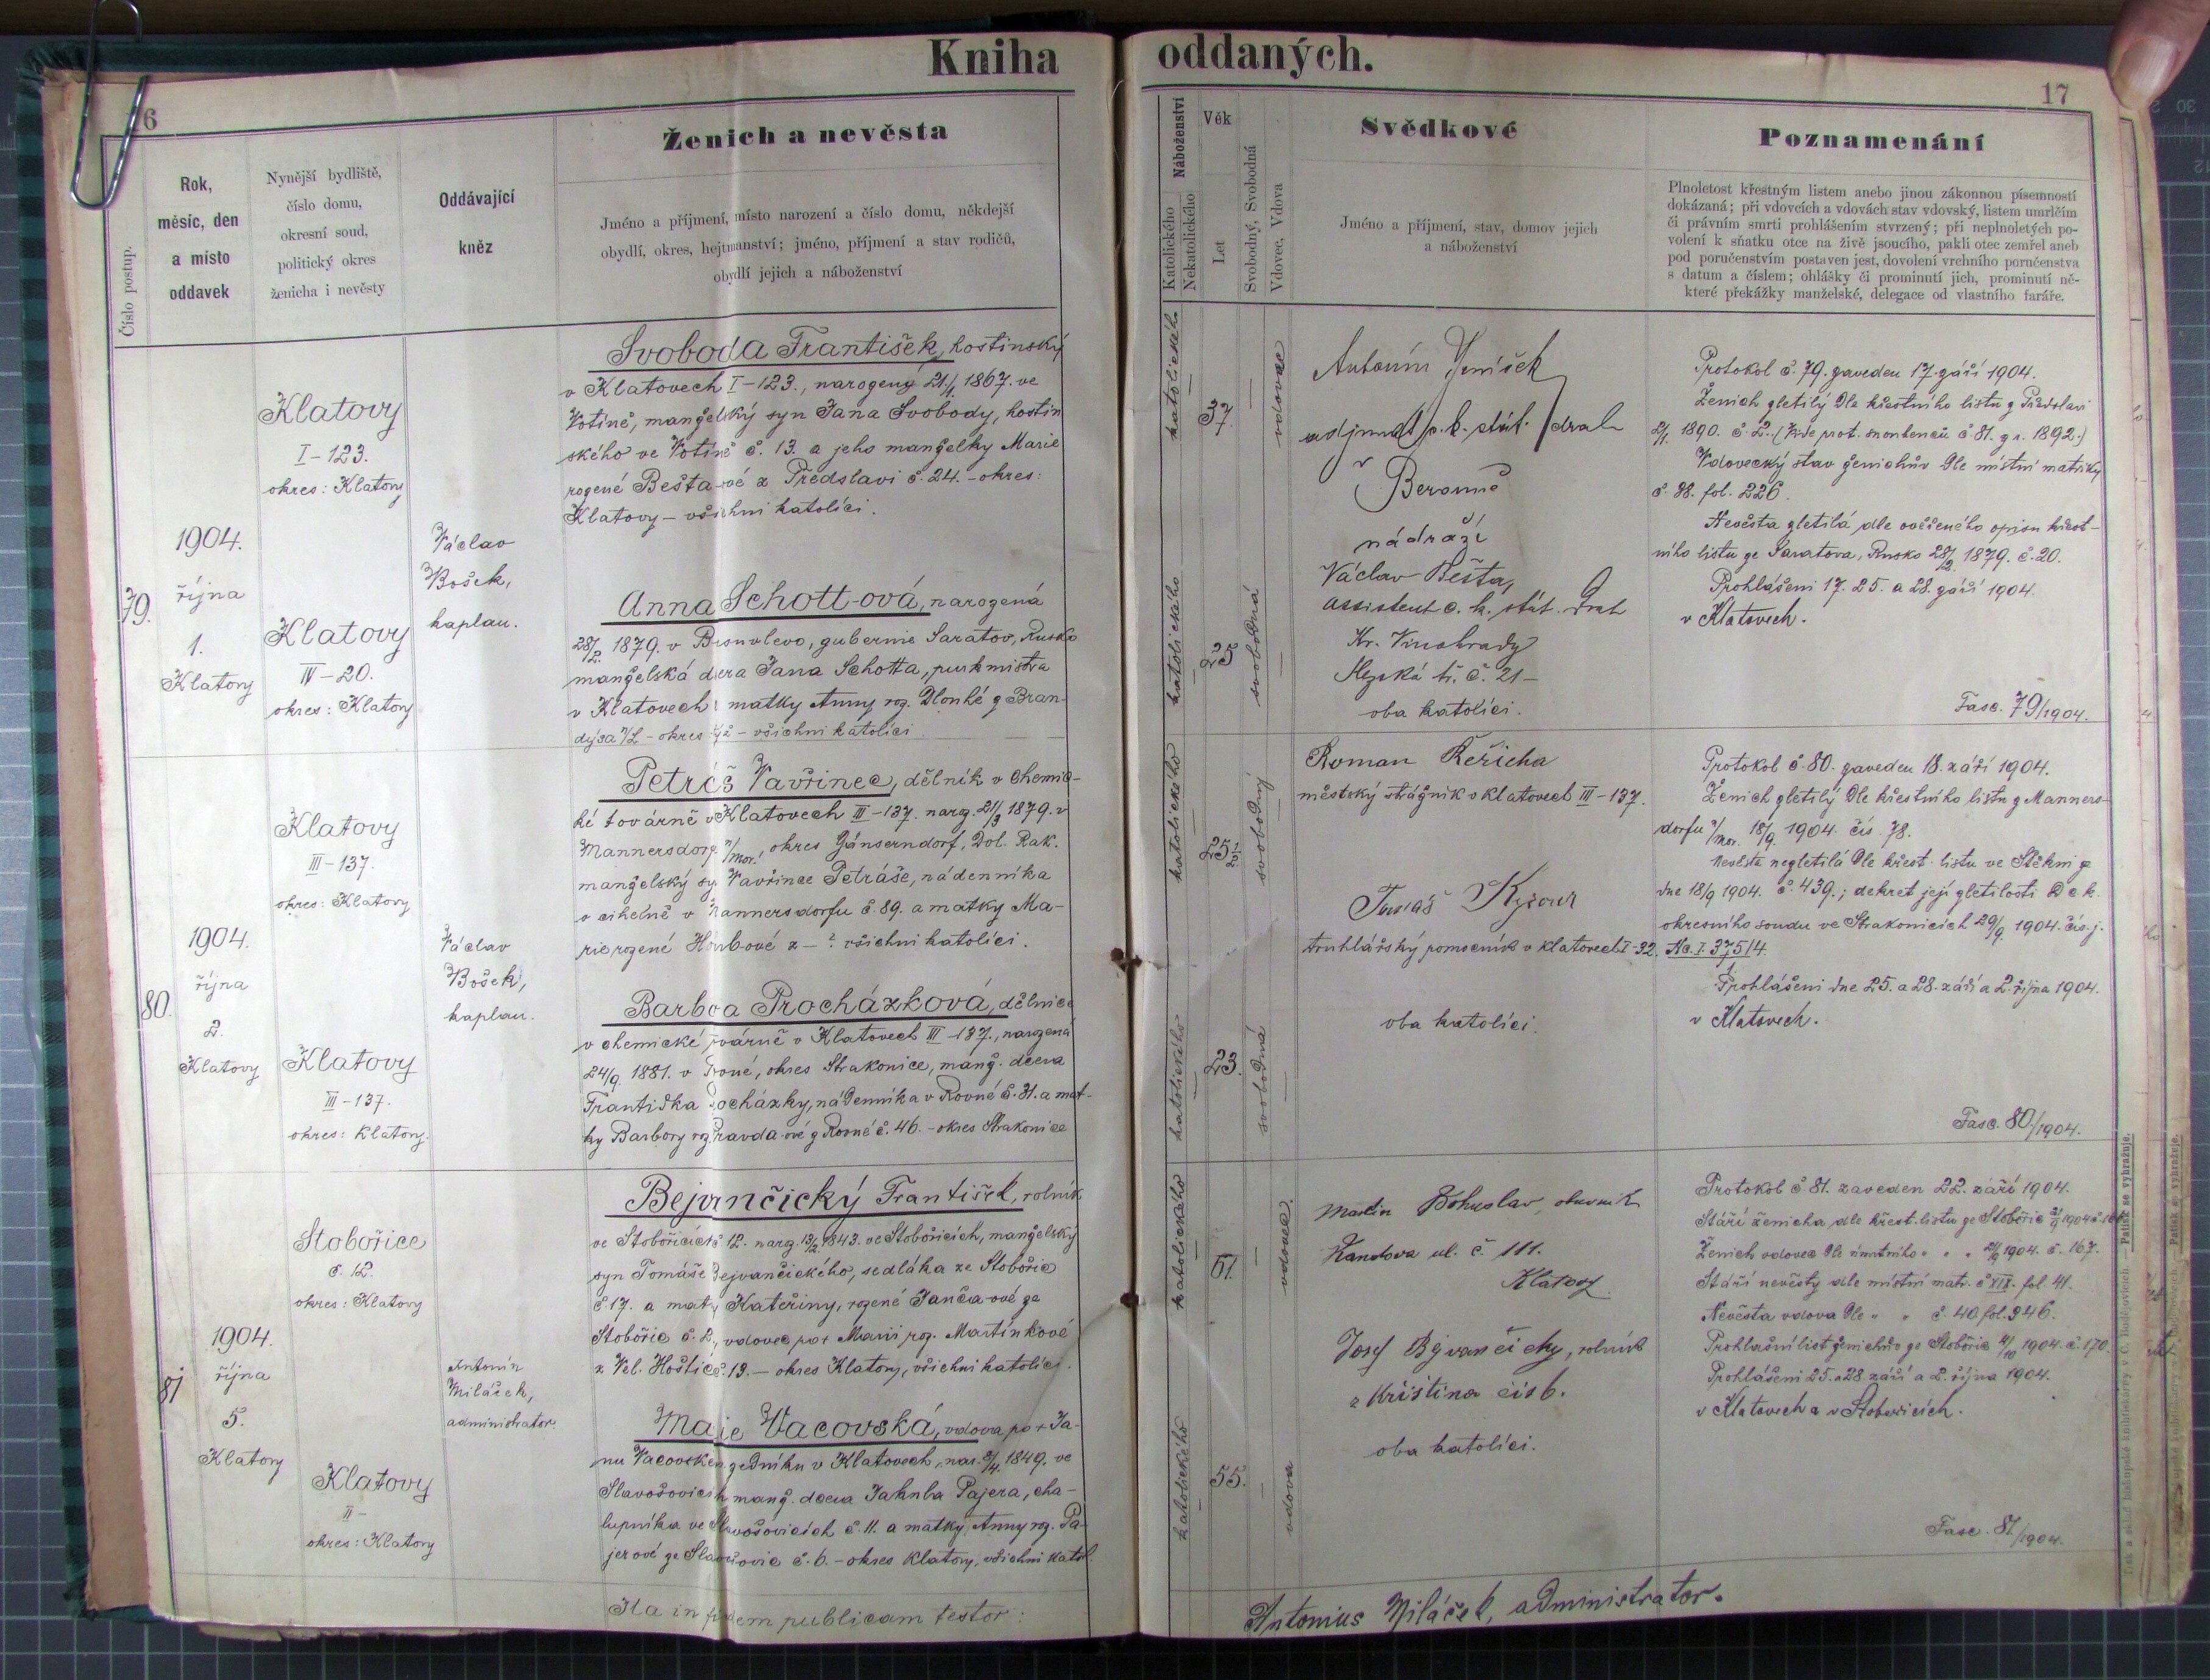 Kniha oddaných.
6
17
Číslo postup.
Rok,
měsíc, den
a místo
oddavek
Nynější bydliště,
číslo domu,
okresní soud,
politický okres
ženicha i nevěsty
Oddávající
kněz
Ženich a nevěsta
Jméno a příjmení, místo narození a číslo domu, někdejší
obydlí, okres, hejtmanství; jméno, příjmení a stav rodičů,
obydlí jejich a náboženství
Náboženství
Katolického
Nekatolického
Věk
Let
Svobodný, Svobodná
Vdovec, Vdova
Svědkové
Jméno a příjmení, stav, domov jejich
a náboženství
Poznamenání
Plnoletost křestným listem anebo jinou zákonnou písemností
dokázaná; při vdovcích a vdovách stav vdovský, listem umrlčím
či právním smrti prohlášením stvrzený; při neplnoletých po-
volení k sňatku otce na živě jsoucího, pakli otec zemřel aneb
pod poručenstvím postaven jest, dovolení vrchního poručenstva
s datum a číslem; ohlášky či prominutí jich, prominutí ně-
které překážky manželské, delegace od vlastního faráře.
79.
1904.
října
1.
Klatovy
Klatovy
I-123.
okres: Klatovy
Klatovy
IV-20.
okres: Klatovy
Václav
Bošek,
kaplan.
Svoboda František, hostinský
v Klatovech I-123., narozený 21/1. 1867. ve
Votíně, manželský syn Jana Svobody, hostin
ského ve Votíně č. 13. a jeho manželky Marie
rozené Bešta-vé z Předslavi č. 24. - okres:
Klatovy - všichni katolíci.
Anna Schott-ová, narozená
28/2. 1879. v gubernie Saratov, Rusko
manželská dcera Jana Schotta, purkmistra
v Klatovech matky Anny roz. Dlouhé z Bran-
dýsa n/L - okres - všichni katolíci
katolického
37.
vdovec
katolického
25
svobodná
Antonín Jeníšek
adjunkt c. k. stát. drah
v
Berouně
nádraží
Václav Bešta,
assistent c. k. stát. drah
Kr. Vinohrady
Slezská tř. č. 21-
oba katolíci.
Protokol č. 79. zaveden 17. září 1904.
Ženich zletilý dle křestního listu z Předslavi
2/1. 1890. č. 2. (Vide prot. snoubenců č. 81. z r. 1892.)
Vdovecký stav ženichův dle místní matriky
č. 88. fol. 226.
Nevěsta zletilá dle ověřeného opisu křest-
ního listu ze Saratova, Rusko 28/2. 1879. č. 20.
Prohlášeni 17. 25. a 28. září 1904.
v Klatovech.
Fasc. 79/1904.
80.
1904.
října
2.
Klatovy
Klatovy
III-137.
okres: Klatovy
Klatovy
III-137.
okres: Klatovy.
Václav
Bošek,
kaplan.
Petráš Vavřinec, dělník v chemic-
ké továrně v Klatovech III-137. naroz. 21/3 1879. v
Mannersdorf n/Mor., okres Gänserndorf, Dol. Rak.
manželský syn Vavřince Petráše, nádenníka
v cihelně v Mannersdorfu č. 89. a matky Ma-
rie rozené z - ? všichni katolíci.
Barbora Procházková, dělnice
v chemické továrně v Klatovech III-137., narozená
24/9. 1881. v Rovné, okres Strakonice, manž. dcera
Františka Procházky, nádenníka v Rovné č. 31. a mat-
ky Barbory roz. Pravda-ové z Rovné č. 46. - okres Strakonice
katolického
25½
svobodný
katolického
23.
svobodná
Roman Řeřicha
městský strážník v Klatovech III-137.
Tomáš
truhlářský pomocník v Klatovech I-32.
oba katolíci.
Protokol č. 80. zaveden 18. září 1904.
Ženich zletilý dle křestního listu z Manners-
dorfu n/Mor. 18/9. 1904. čís. 78.
Nevěsta nezletilá dle křest. listu ve Štěkni z
dne 18/9 1904. č. 439.; dekret její zletilosti od c. k.
okresního soudu ve Strakonicích 29/9. 1904. čís. j.
Nc. I. 375/4.
Prohlášeni dne 25. a 28. září a 2. října 1904.
v Klatovech.
Fasc. 80/1904.
81
1904.
října
5.
Klatovy
Stobořice
č. 12.
okres: Klatovy
Klatovy
II-
okres: Klatovy
Antonín
Miláček,
administrator.
Bejvančický František, rolník
ve Stobořicích č. 12. naroz. 13/2. 1843. ve Stobořicích, manželský
syn Tomáše Bejvančického, sedláka ze Stobořic
č 17. a matky Kateřiny, rozené Janča-ové ze
Stobořic č. 2., vdovec po + Marii roz. Martínkové
z Vel. Hoštic č. 19. - okres Klatovy, všichni katolíci.
Marie Vacovská, vdova po + Ja-
nu Vacovském, zedníku v Klatovech, nar. 3/4. 1849. ve
Slavošovicích manž. dcera Jakuba Pajera, cha-
lupníka ve Slavošovicích č. 11. a matky Anny roz. Pa-
jerové ze Slavošovic č. 6. - okres Klatovy, všichni katol.
katolického
61.
vdovec.
katolického
55.
vdova
Martin Bohuslav, obuvník
Randova ul. č. 111.
Klatovy.
Josef Bejvančický, rolník
z Kristina čís 6.
oba katolíci.
Protokol č. 81. zaveden 22. září 1904.
Stáří ženicha dle křest. listu ze Stobořic
Ženich vdovec dle úmrtního " " 1904. č. 167.
Stáří nevěsty dle místní matr. č XIX. fol. 41.
Nevěsta vdova dle " " č. 40 fol. 346.
Prohlašní list ženichův ze Stobořic 4/10 1904. č. 170.
Prohlášeni 25. a 28. září a 2. října 1904.
v Klatovech a v Stobořicích.
Fasc. 81/1904.
Ita in fidem publicam testor:
Antonius Miláček, administrator.